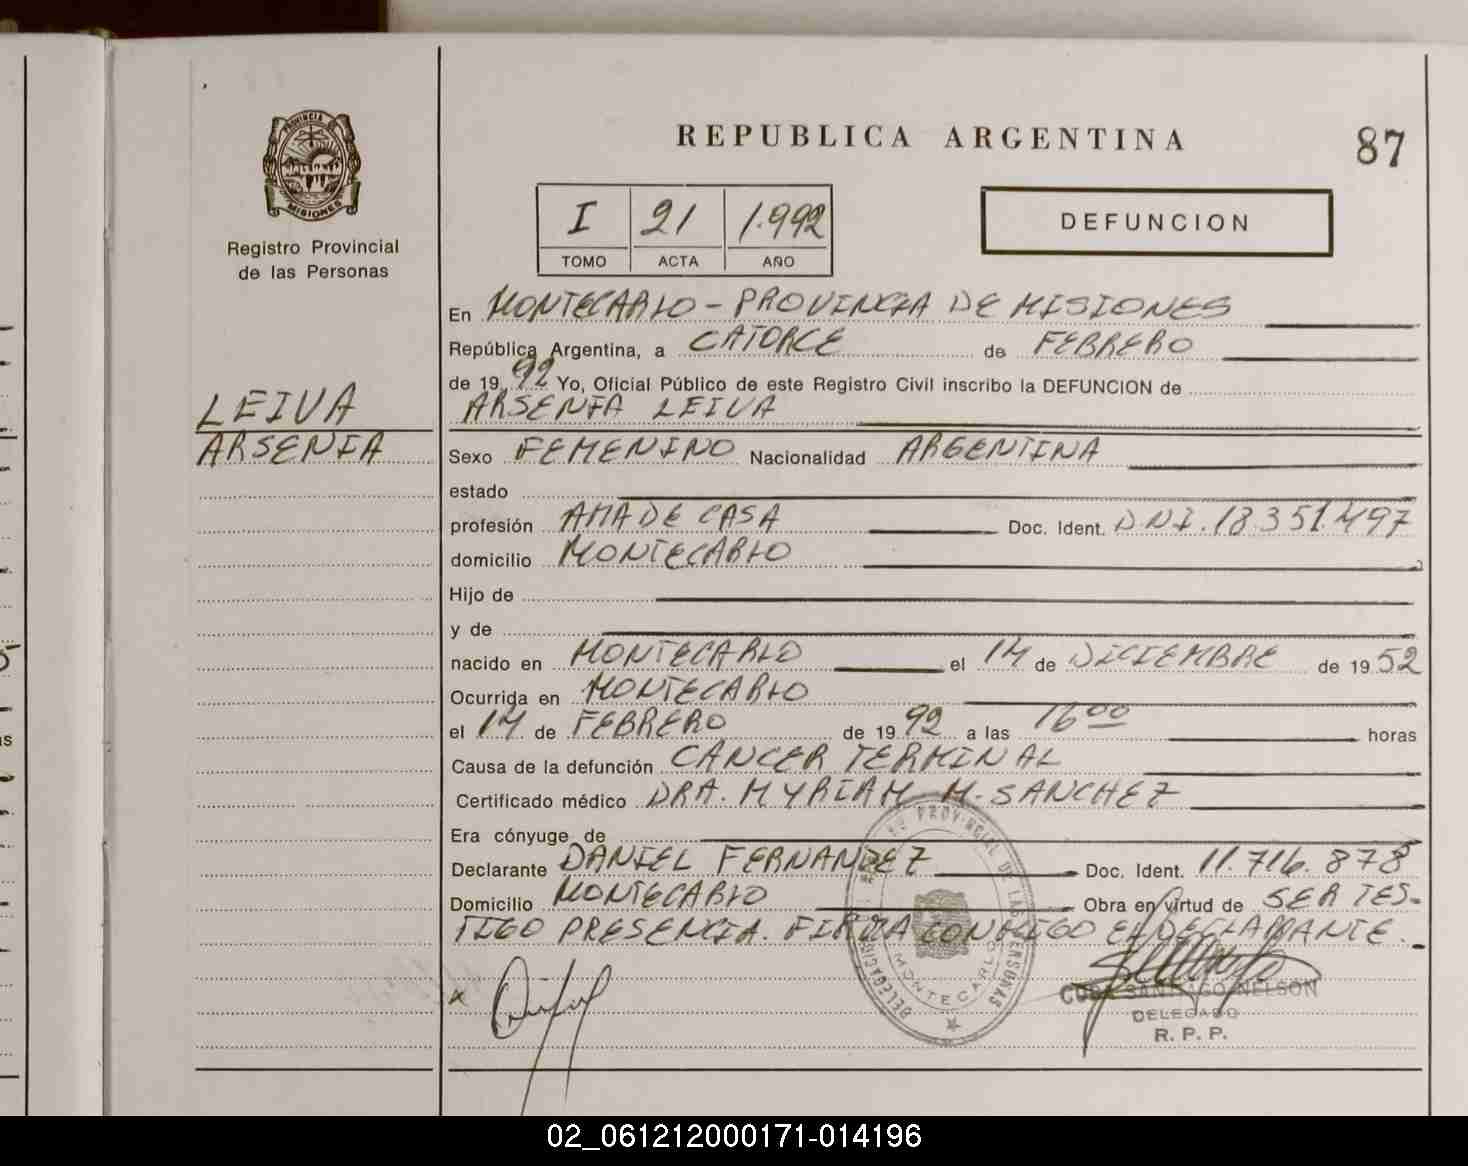 PROVINCIA
MISIONES
Registro Provincial
de las Personas
REPUBLICA ARGENTINA
87
I 21 1.992
TOMO ACTA AÑO
DEFUNCION
En MONTECARLO - PROVINCIA DE MISIONES
República Argentina, a CATORCE de FEBRERO
de 19 92 Yo, Oficial Público de este Registro Civil inscribo la DEFUNCION de
ARSENIA LEIVA
LEIVA
ARSENIA
Sexo FEMENINO Nacionalidad ARGENTINA
estado
profesión AMA DE CASA Doc. Ident. DNI. 18.351.497
domicilio MONTECARLO
Hijo de
y de
nacido en MONTECARLO el 14 de DICIEMBRE de 19 52
Ocurrida en MONTECARLO
el 14 de FEBRERO de 19 92 a las 16 00 horas
Causa de la defunción CANCER TERMINAL
Certificado médico DRA. MYRIAM M. SANCHEZ
Era cónyuge de
Declarante DANIEL FERNANDEZ Doc. Ident. 11.716.878
Domicilio MONTECARLO Obra en virtud de SER TES-
TIGO PRESENCIA. FIRMA CONMIGO EL DECLARANTE.
PROVINCIAL DE LAS PERSONAS
DELEGACION
MONTECARLO
SANTIAGO NELSON
DELEGADO
R. P. P.
02_061212000171-014196